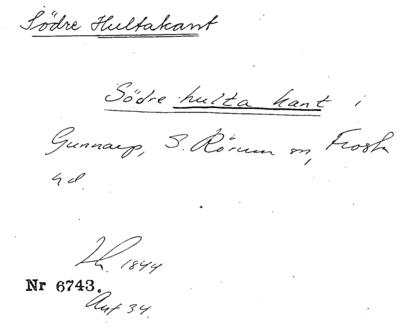 Södre Hultakant
Södre hulta kant i
Gunnarp, S. Rörum sn, Frosta
hd.
Lh. 1844
Nr 6743.
Ant 34.